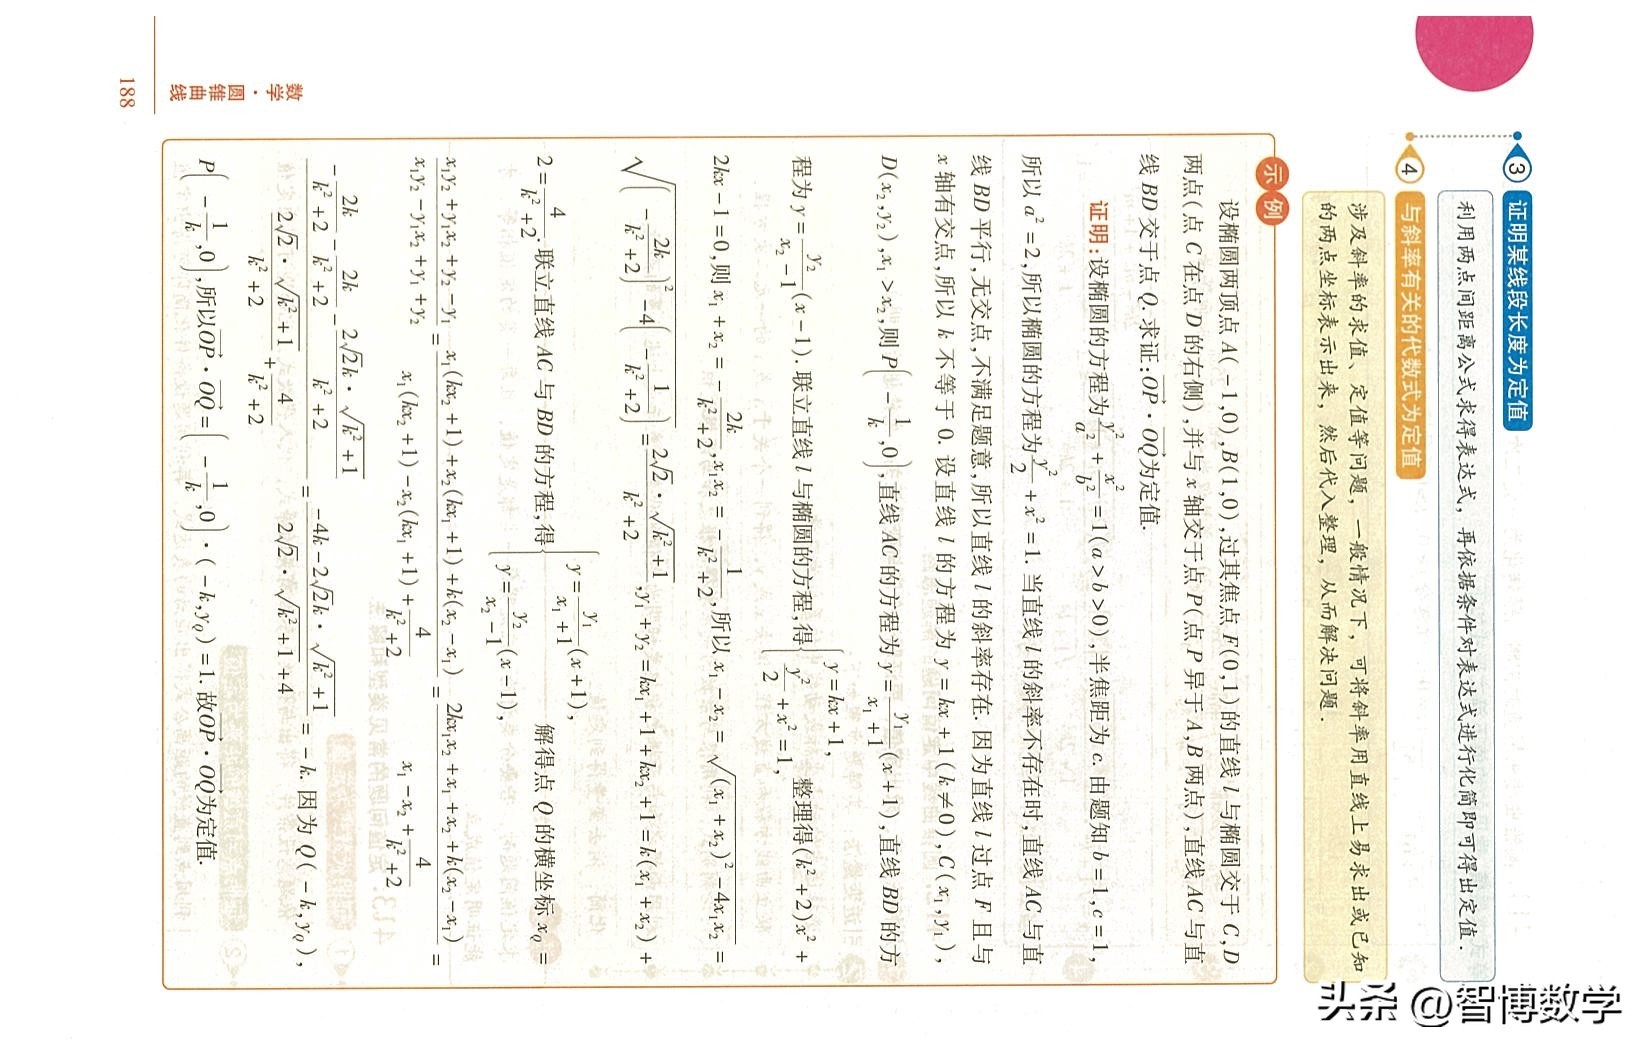 ③ 证明某线段长度为定值
利用两点间距离公式求得表达式，再依据条件对表达式进行化简即可得出定值.
④ 与斜率有关的代数式为定值
涉及斜率的求值、定值等问题，一般情况下，可将斜率用直线上易求出或已知
的两点坐标表示出来，然后代入整理，从而解决问题.
示例
设椭圆两顶点 A(-1,0),B(1,0),过其焦点 F(0,1)的直线 l 与椭圆交于 C,D
两点(点 C 在点 D 的右侧),并与 x 轴交于点 P(点 P 异于 A,B 两点),直线 AC 与直
线 BD 交于点 Q. 求证:OP→·OQ→为定值.
证明:设椭圆的方程为y²/a²+x²/b²=1(a>b>0),半焦距为 c. 由题知 b=1,c=1,
所以 a²=2,所以椭圆的方程为y²/2+x²=1. 当直线 l 的斜率不存在时,直线 AC 与直
线 BD 平行,无交点,不满足题意,所以直线 l 的斜率存在. 因为直线 l 过点 F 且与
x 轴有交点,所以 k 不等于 0. 设直线 l 的方程为 y=kx+1(k≠0),C(x₁,y₁),
D(x₂,y₂),x₁>x₂,则 P(-1/k,0),直线 AC 的方程为 y=y₁/(x₁+1)(x+1),直线 BD 的方
程为 y=y₂/(x₂-1)(x-1). 联立直线 l 与椭圆的方程,得{y=kx+1, y²/2+x²=1, 整理得(k²+2)x²+
2kx-1=0,则 x₁+x₂=-2k/(k²+2),x₁x₂=-1/(k²+2),所以 x₁-x₂=√((x₁+x₂)²-4x₁x₂)=
√((-2k/(k²+2))²-4(-1/(k²+2)))=2√2·√(k²+1)/(k²+2),y₁+y₂=kx₁+1+kx₂+1=k(x₁+x₂)+
2=4/(k²+2). 联立直线 AC 与 BD 的方程,得{y=y₁/(x₁+1)(x+1), y=y₂/(x₂-1)(x-1), 解得点 Q 的横坐标 x_Q=
(x₁y₂+y₁x₂+y₂-y₁)/(x₁y₂-y₁x₂+y₁+y₂)=(x₁(kx₂+1)+x₂(kx₁+1)+k(x₂-x₁))/(x₁(kx₂+1)-x₂(kx₁+1)+4/(k²+2))=(2kx₁x₂+x₁+x₂+k(x₂-x₁))/(x₁-x₂+4/(k²+2))=
(-2k/(k²+2)-2k/(k²+2)-2√2k·√(k²+1)/(k²+2))/(2√2·√(k²+1)/(k²+2)+4/(k²+2))=(-4k-2√2k·√(k²+1))/(2√2·√(k²+1)+4)=-k. 因为 Q(-k,y_Q),
P(-1/k,0),所以OP→·OQ→=(-1/k,0)·(-k,y_Q)=1. 故OP→·OQ→为定值.
数学·圆锥曲线
188
头条 @智博数学